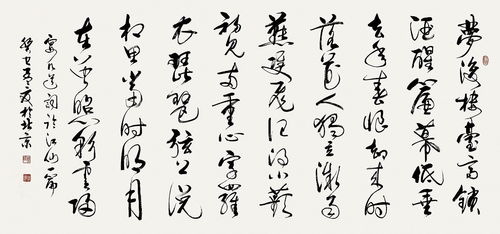 夢後樓臺高鎖
酒醒簾幕低垂
去年春恨却來時
落花人獨立微雨
燕雙飛記得小蘋
初見兩重心字羅
衣琵琶弦上說
相思當時明月
在曾照彩雲歸
晏几道詞臨江仙一篇
癸巳於北京